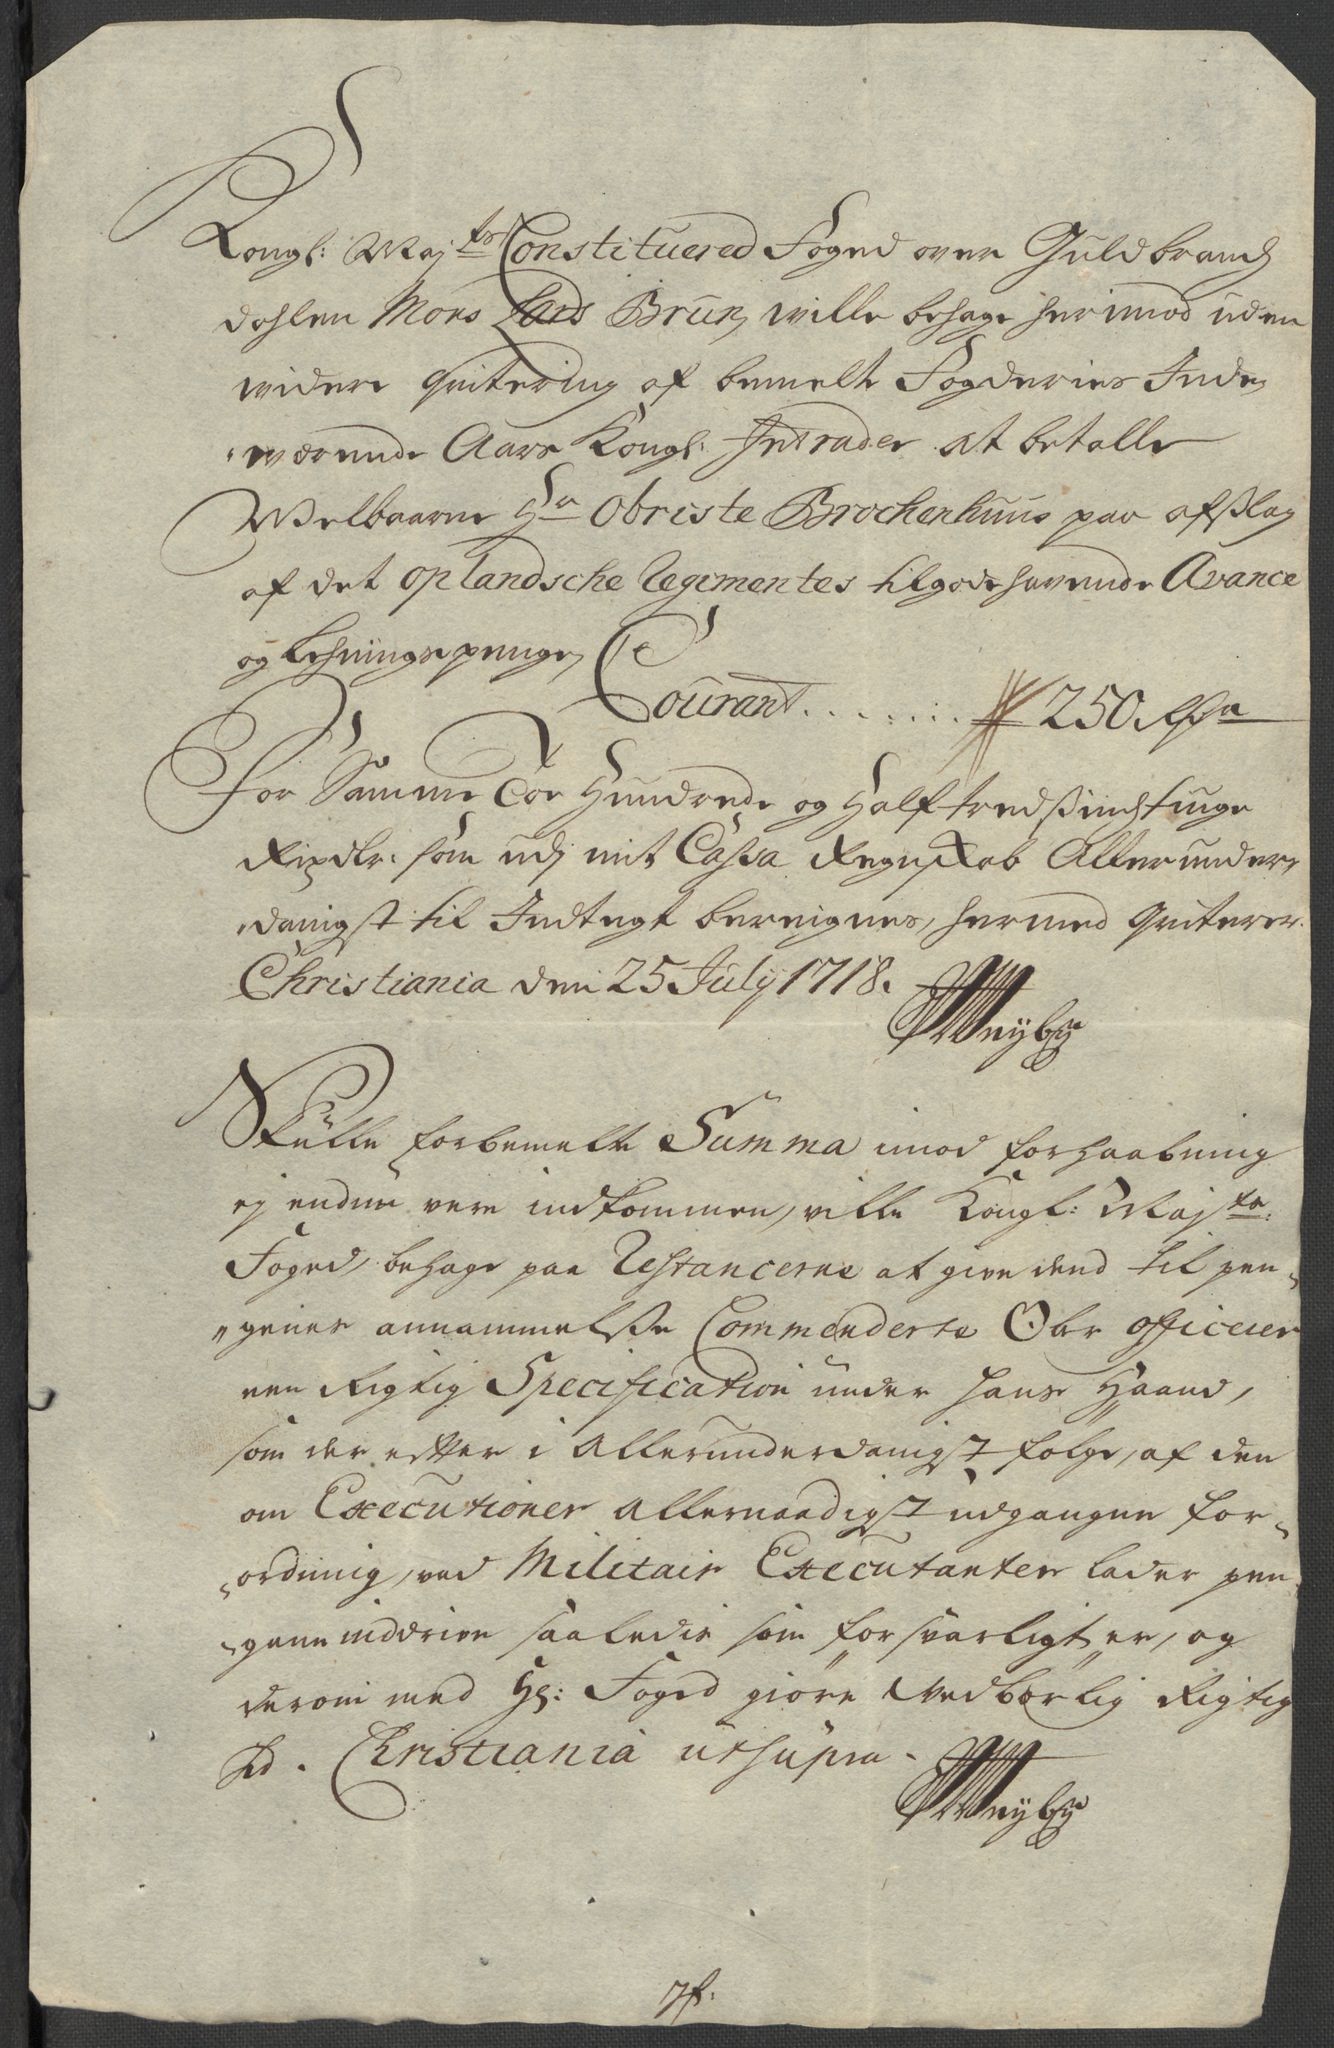 Kongl: Maj.ts Constituered Foged over Guldbrands
dahlen Mons Lars Brun, wille behage herimod uden
widere qvitering af bemelte Fogderies Inde,
"wærende Aars Kongl: Intrader at betalle
Welbaarne Hr Obriste Brochenhuus paa afslag
af det oplandsche Regimentes tilgodehavende Avance
og Lehningspenge,
Courant . . . . . . . 250 Rdr
For Samme Toe Hundrede og Halftredsindstiuge
Rixdlr. som udj mit Cassa Regnskab Allerunder,
"danigst til Indtegt bereignes, hermed qviterer.
Christiania den 25 July 1718.
Meyby
Skulle forbemelte Summa imod forhaabning
ej endnu vere indkommen, ville Kongl: Majts:
Foged, behage paa Restancerne at give dend til pen-
"genes annammelsse Commenderte Ober officeer
een Rigtig Specification under hans Haand,
som der efter i Allerunderdanigst følge, af den
om Executioner Allernaadigst udgangne for-
"ordning, ved Militair Executanter lader pen
"gene inddrive saaledis som forsvarligt er, og
derom med Hr: Foged giøre Wedbørlig Rigtig
hed. Christiania ut supra.
Meyby